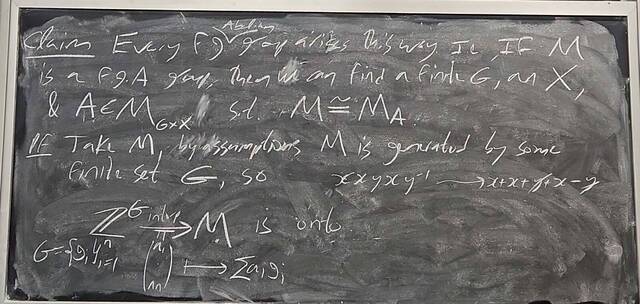 Claim Every fg Abelian group arises this way Ie, If M
is a f.g.A group, then we can find a finite G, an X,
& A∈M_{G×X} s.t. M≅M_A.
PF Take M, by assumptions M is generated by some
finite set G, so xxyxy⁻¹ → x+x+y+x-y
ℤ^G → M is onto
G={g_i}_{i=1}^n ↦ ∑a_i g_i